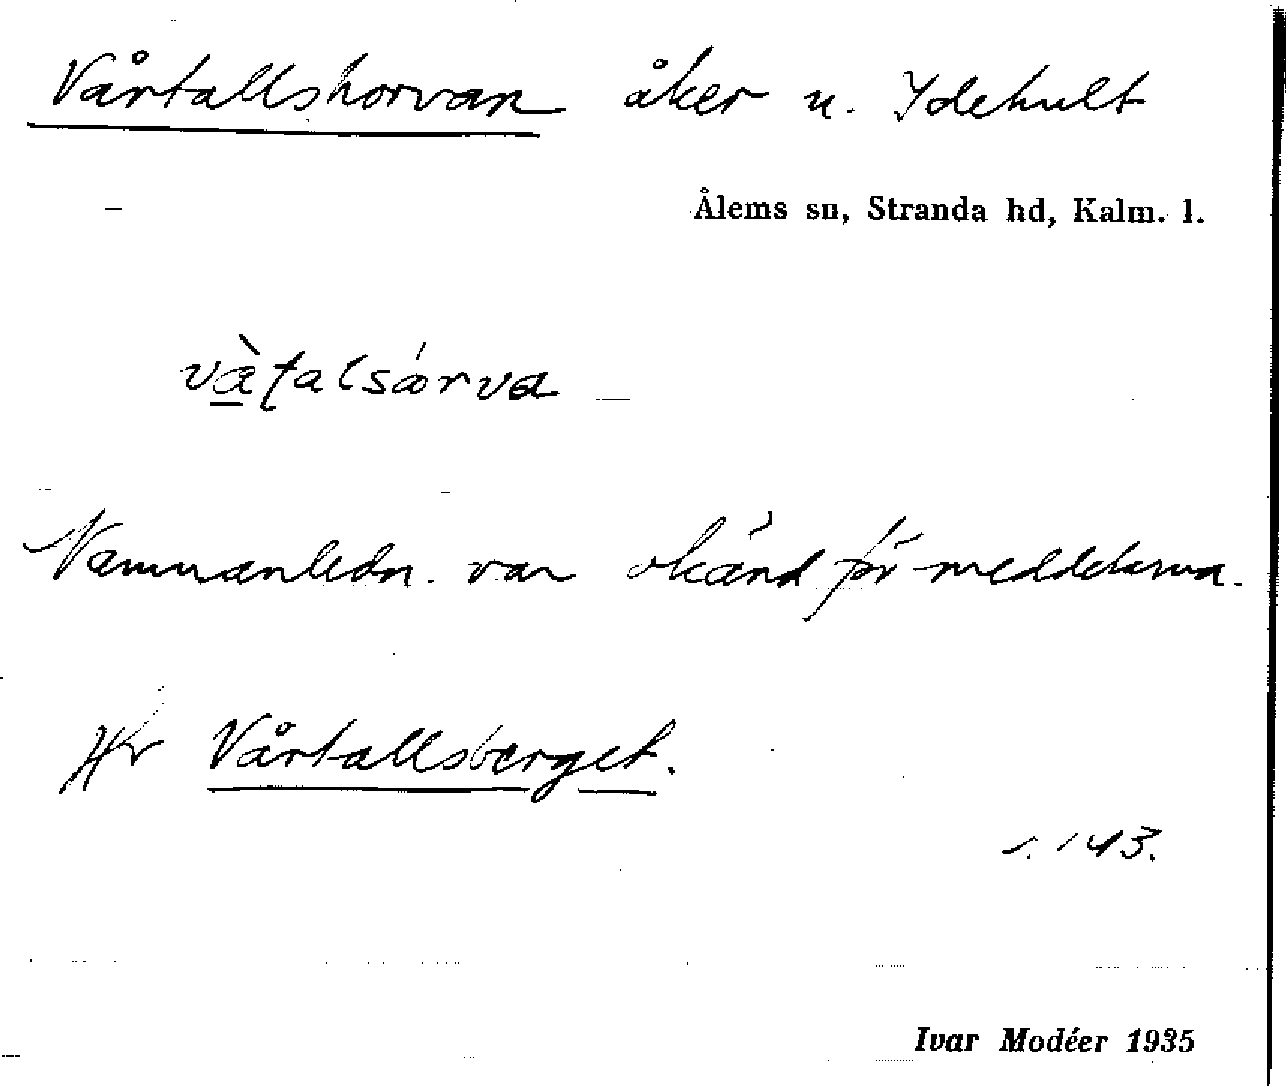 Vårtallshorvan åker u. Ydehult
Ålems sn, Stranda hd, Kalm. l.
và̠ʈalsǿrva
Namnanledn. var okänd för meddelarna.
Jfr Vårtallsberget.
s. 143.
Ivar Modéer 1935